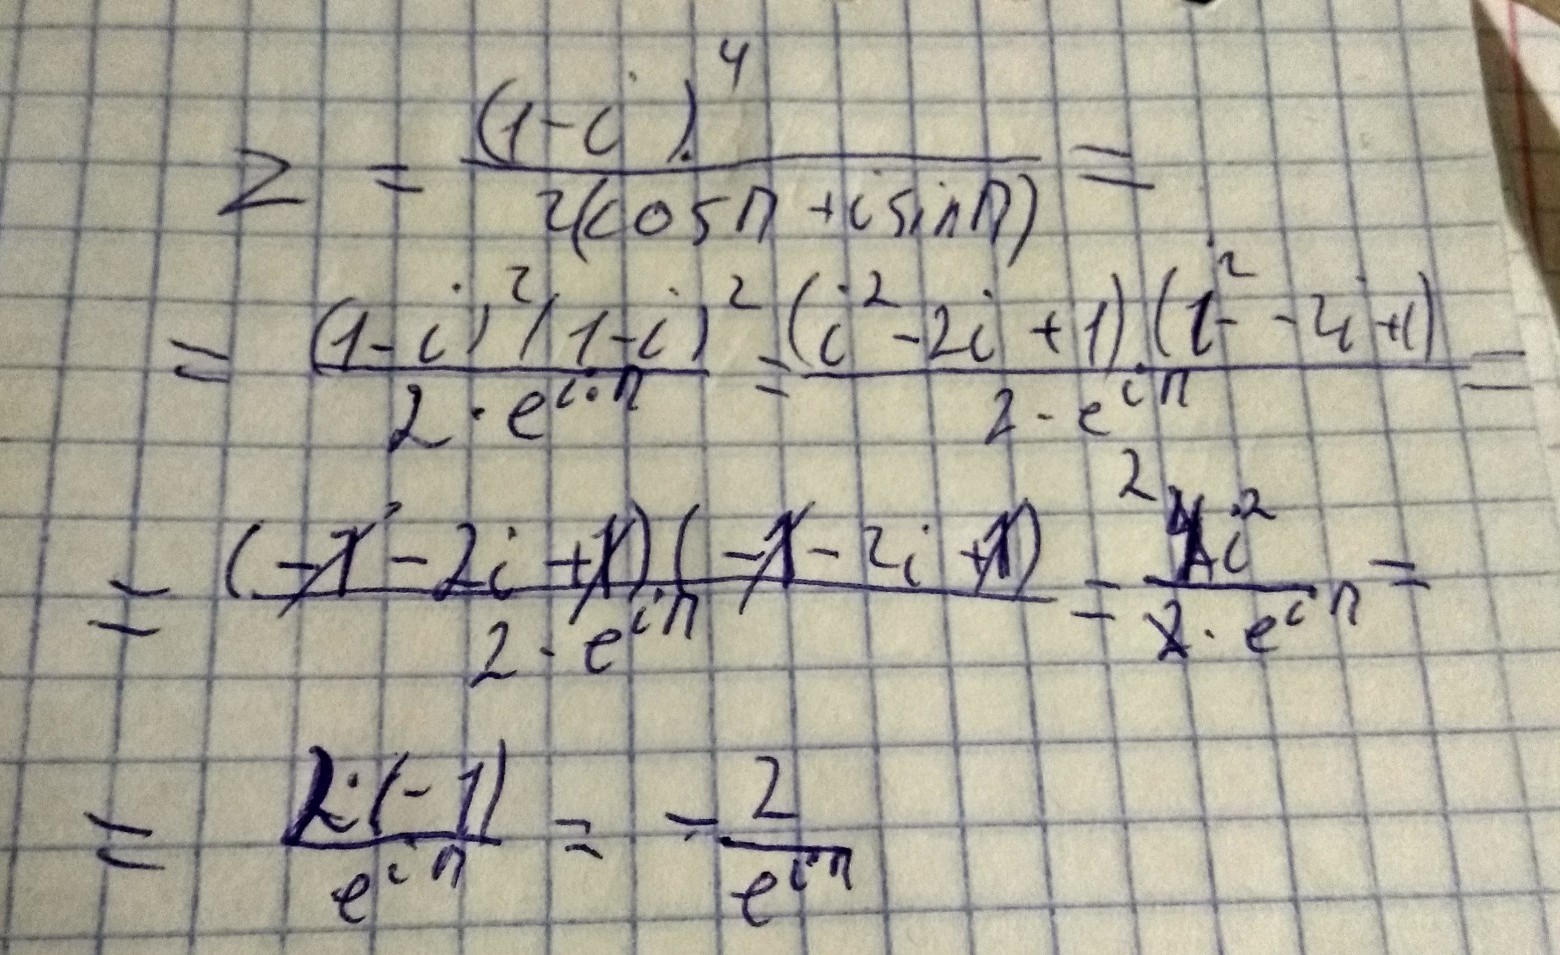 z = (1-i)^4 / 2(cosπ + i sinπ) =
= (1-i)^2 (1-i)^2 / 2 · e^{i·π} = (i^2 - 2i + 1) (i^2 - 2i + 1) / 2 · e^{iπ} =
= (-1 - 2i + 1) (-1 - 2i + 1) / 2 · e^{iπ} = 2 4i^2 / 2 · e^{iπ} =
= 2·(-1) / e^{iπ} = - 2 / e^{iπ}